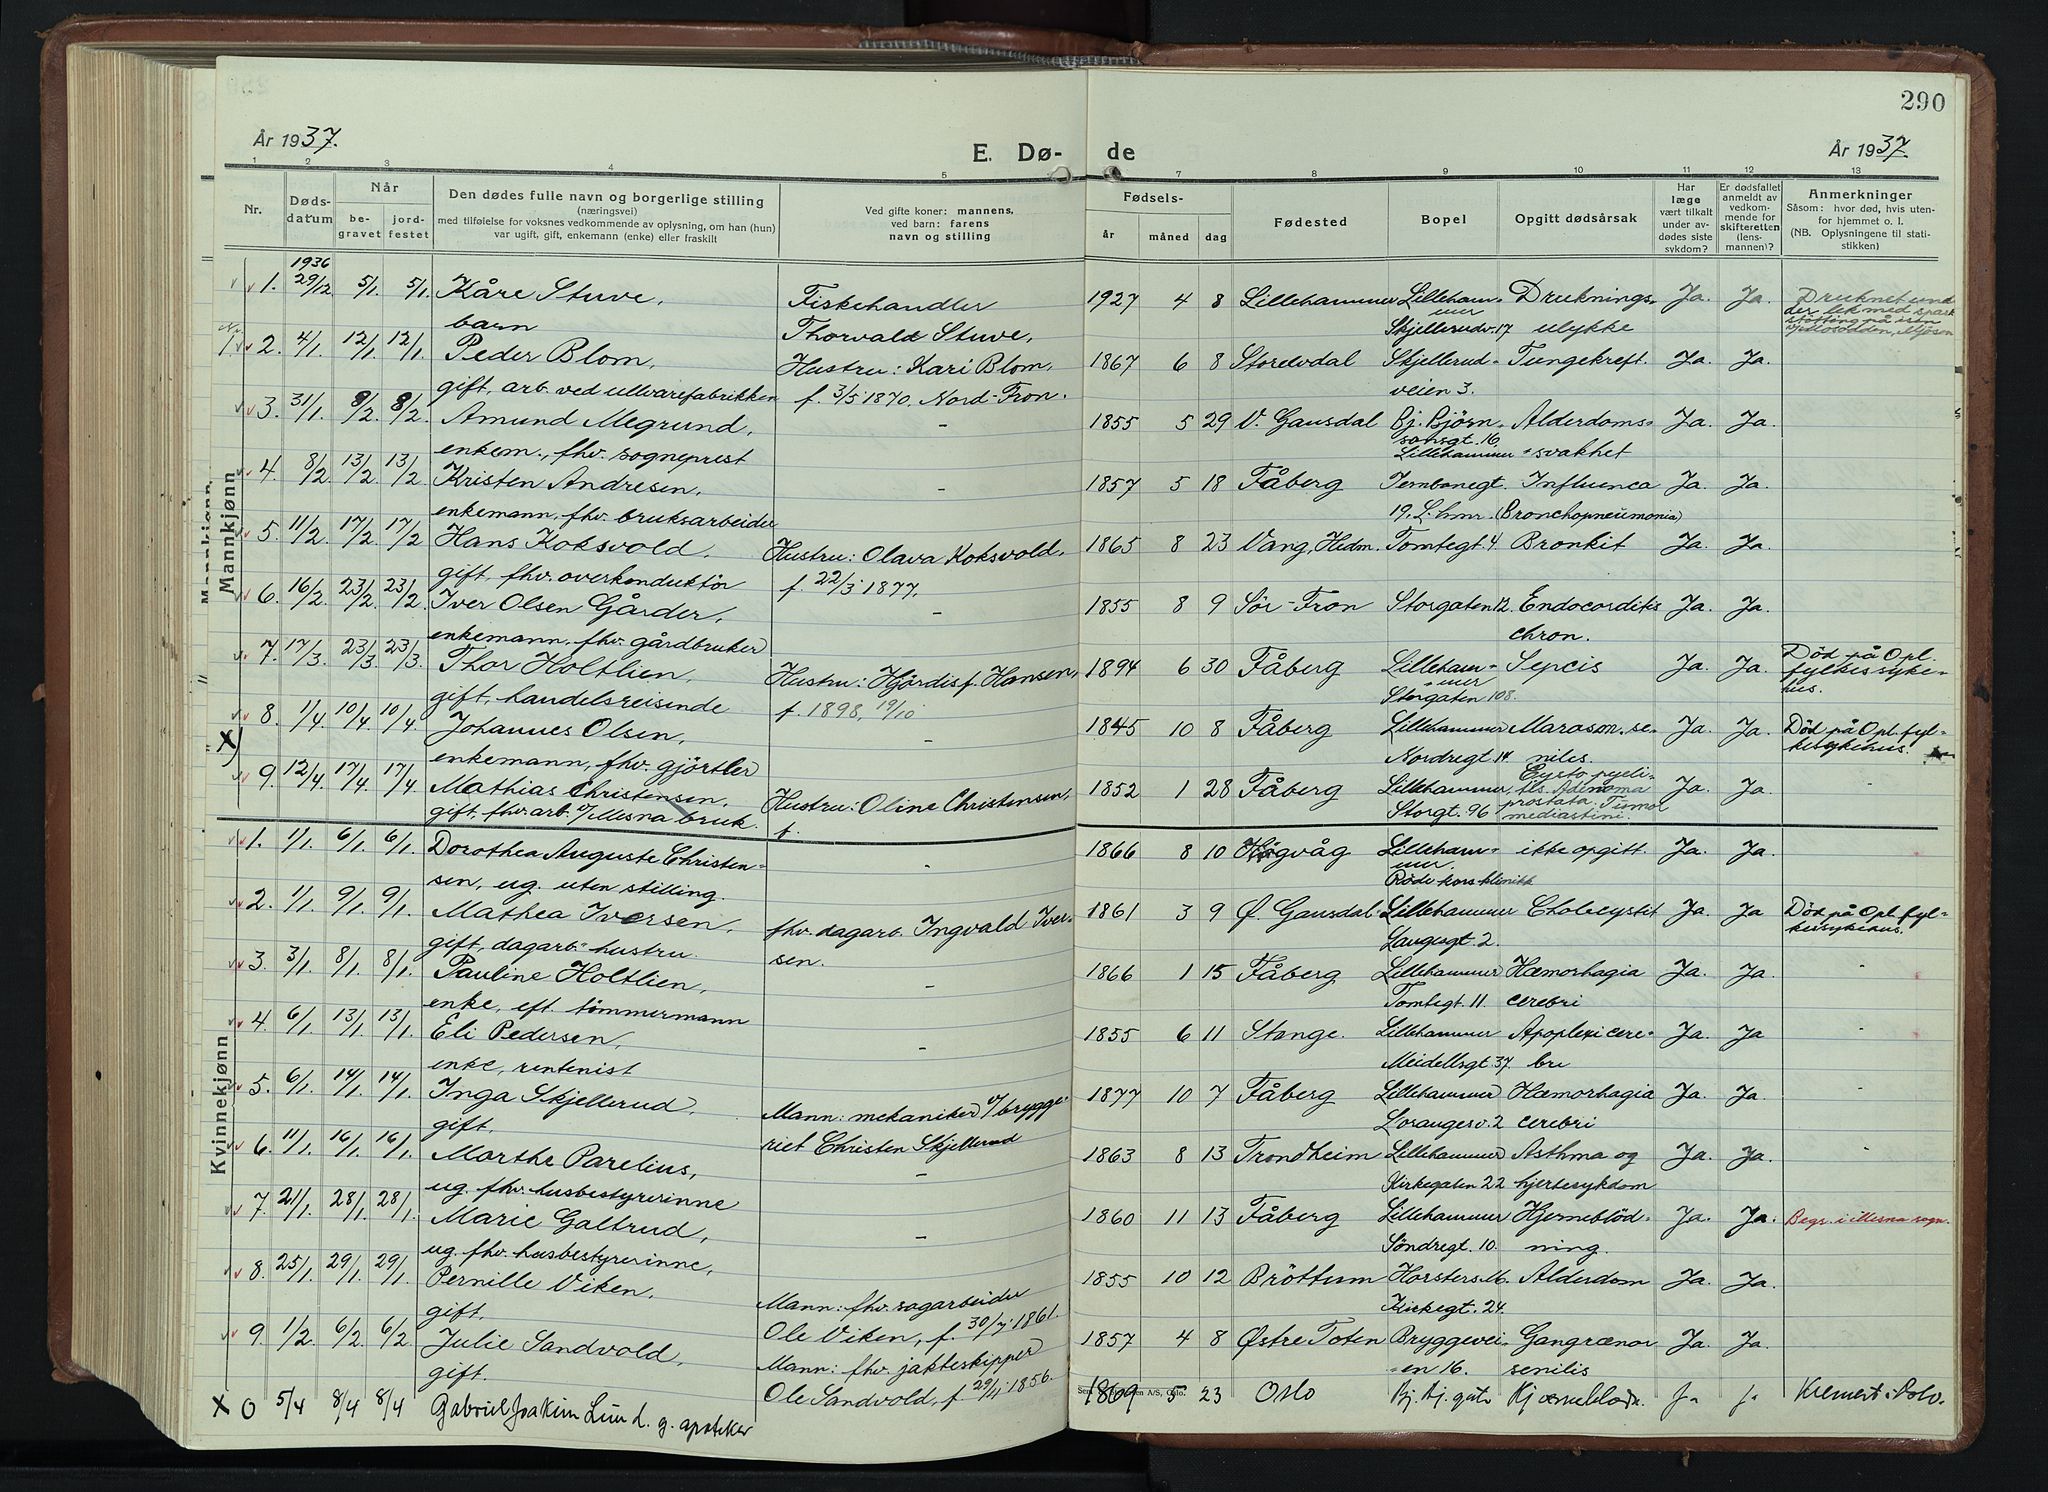 290
År 1937.
E. Dø-
de
År 1937
1 2 3 4 5 7 8 9 10 11 12 13
Nr.
Døds-
datum
Når
be-
gravet
jord-
festet
Den dødes fulle navn og borgerlige stilling
(næringsvei)
med tilføielse for voksnes vedkommende av oplysning, om han (hun)
var ugift, gift, enkemann (enke) eller fraskilt
Ved gifte koner: mannens,
ved barn: farens
navn og stilling
Fødsels-
år måned dag
Fødested
Bopel
Opgitt dødsårsak
Har
læge
vært tilkalt
under av-
dødes siste
sykdom?
Er dødsfallet
anmeldt av
vedkom-
mende for
skifteretten
(lens-
mannen)?
Anmerkninger
Såsom: hvor død, hvis uten-
for hjemmet o. l.
(NB. Oplysningene til stati-
stikken)
Mannkjønn
1936
1. 29/12 5/1. 5/1. Kåre Stuve, Fiskehandler 1927 4 8 Lillehammer Lilleham- Druknings- Ja. Ja. Druknet un-
barn Thorvald Stuve, mer der lek med spark-
Skjellerudv. 17 ulykke
2. 4/1. 12/1. 12/1. Peder Blom, Hustru: Kari Blom, 1867 6 8 Storelvdal Skjellerud- Tungekreft. Ja. Ja.
gift, arb. ved ullvarefabrikken f. 3/5 1870. Nord-Fron. veien 3.
3. 31/1. 8/2. 8/2. Amund Megrund, - 1855 5 29 V. Gausdal Bj. Björn- Alderdoms- Ja. Ja.
enkem., fhv. sogneprest sonsgt. 16 Lillehammer svakhet
4. 8/2. 13/2. 13/2 Kristen Andresen, - 1857 5 18 Fåberg Jernbanegt. Influenca Ja. Ja.
enkemann, fhv. bruksarbeider 19, L.hmr. (Bronchopneumonia)
5. 11/2. 17/2. 17/2 Hans Koksvold. Hustru: Olava Koksvold, 1865 8 23 Vang, Hedm. Tomtegt 4 Bronkit Ja. Ja.
gift, fhv. overkonduktör f. 22/3 1877.
6. 16/2. 23/2. 23/2. Iver Olsen Gårder, - 1855 8 9 Sör-Fron Storgaten 12. Endocorditis Ja. Ja.
enkemann, fhv. gårdbruker chron.
7. 17/3. 23/3. 23/3. Thor Holtlien, Hustru: Hjördis f. Hansen, 1894 6 30 Fåberg Lilleham- Sepcis Ja. Ja. Död på Opl.
gift, handelsreisende f. 1898, 19/10 mer Storgaten 108. fylkessyke-
hus.
8. 1/4 10/4. 10/4. Johannes Olsen, - 1845 10 8 Fåberg Lillehammer Marasm. se- Ja. Ja. Död på Opl. fyl-
X) enkemann, fhv. gjörtler Nordregt 14. niles. kesykehus.
9. 12/4. 17/4. 17/4 Mathias Christensen, Hustru: Oline Christensen, 1852 1 28 Fåberg Lillehammer, Cysto pyeli- Ja. Ja.
gift, fhv. arb. v/ Mesna bruk. f. Storgt. 96 tis. Adenoma prostata. Tumor mediastini.
Kvinnekjønn
1. 1/1. 6/1. 6/1. Dorothea Auguste Christen- - 1866 8 10 Högvåg Lilleham- ikke opgitt. Ja. Ja.
sen, ug. uten stilling. mer. Röde kors klinikk
2. 1/1. 9/1. 9/1. Mathea Iversen, fhv. dagarb. Ingvald Iver- 1861 3 9 Ø. Gausdal Lillehammer Cholecystit Ja. Ja Död på Opl. fyl-
gift, dagarb. hustru. sen. Langesgt. 2. kessykehus.
3. 3/1. 8/1. 8/1. Pauline Holtlien, - 1866 1 15 Fåberg Lillehammer Hæmorhagia Ja. Ja.
enke, eft. tömmermann Tomtegt. 11. cerebri
4. 6/1. 13/1. 13/1. Eli Pedersen, - 1855 6 11 Stange. Lillehammer Apoplexi cere- Ja. Ja
enke, rentenist Meidellsgt 37. bri
5. 6/1. 14/1. 14/1. Inga Skjellerud, Mann: mekaniker v/ brygge- 1877 10 7 Fåberg Lillehammer Hæmorhagia Ja. Ja.
gift. riet Christen Skjellerud Losangesv. 2 cerebri
6. 11/1. 16/1. 16/1. Marthe Parelius, - 1863 8 13 Trondheim Lillehammer Asthma og Ja. Ja.
ug. fhv. husbestyrerinne Kirkegaten 22 hjertesykdom
7. 21/1. 28/1. 28/1. Marie Galtrud, - 1860 11 13 Fåberg Lillehammer Hjerneblöd- Ja. Ja. Begr. i Mesna sogn.
ug. fhv. husbestyrerinne, Söndregt. 10. ning.
8. 25/1. 29/1. 29/1. Pernille Viken. Mann: fhv. sagarbeider 1855 10 12 Bröttum Horsters M. Alderdom Ja. Ja.
gift. Ole Viken, f. 30/7 1861. Kirkegt. 24.
9. 1/2. 6/2. 6/2. Julie Sandvold, Mann: fhv. jakteskipper 1857 4 8 Østre Toten Bryggevei- Gangrænor Ja. Ja.
gift. Ole Sandvold, f. 29/11 1856. en 16. senilis
X 0 5/4 8/4 8/4 Gabriel Joakim Lund. g. apoteker 1869 5 23 Oslo Bj. Bj. gate Hjerneblødn. J. J. Kremert i Oslo.